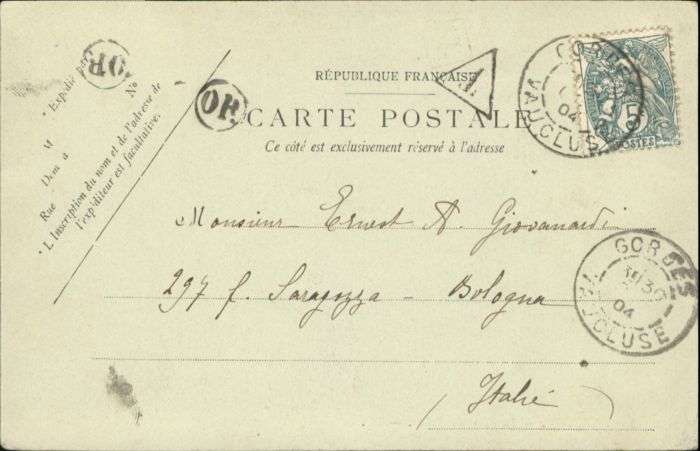 RÉPUBLIQUE FRANÇAISE
CARTE POSTALE
Ce côté est exclusivement réservé à l'adresse
OR
OR
Expédié par
M
No
Dem à
Rue
* L'Inscription du nom et de l'adresse de
l'expéditeur est facultative.
GORDES
VAUCLUSE
04
5
POSTES
Monsieur Ernest A. Giovanardi
297 f. Saragozza - Bologna
Italie
GORDES
04
VAUCLUSE